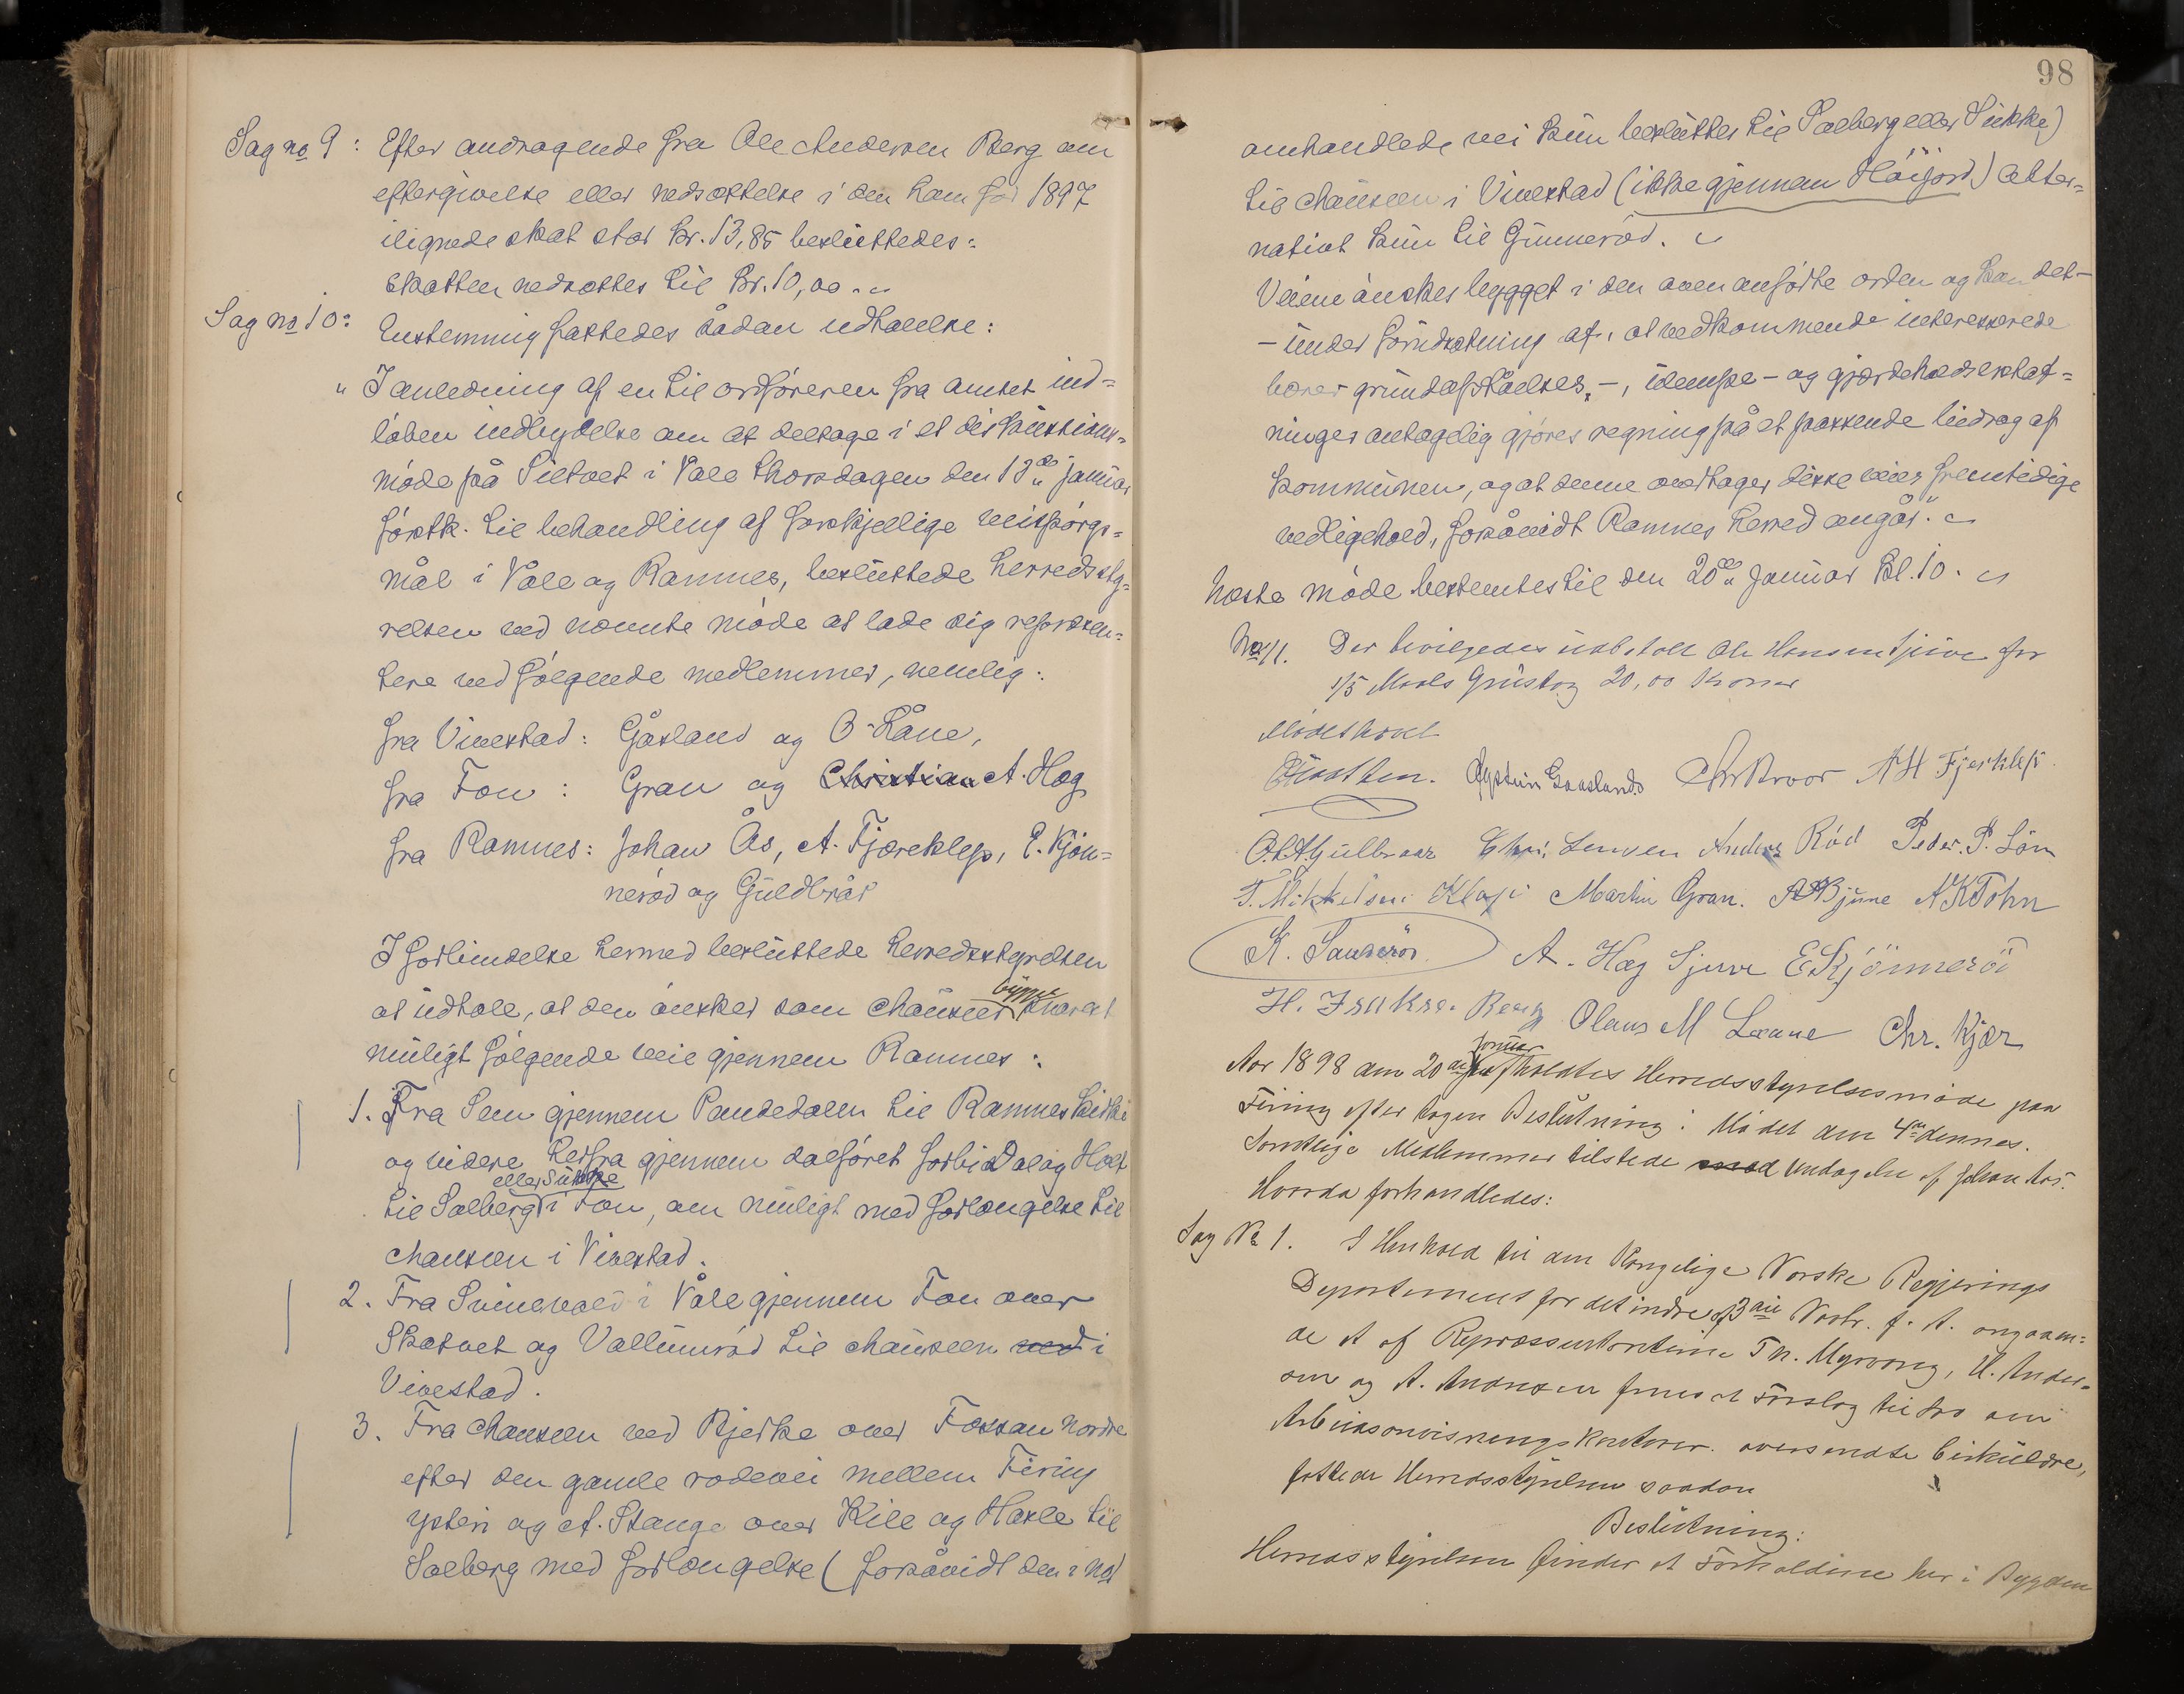 Sag no 9: Efter andragende fra Ole Andersen Berg om
eftergivelse eller nedsættelse i den ham for 1897
ilignede skat stor kr. 13,85 besluttedes:
Skatten nedsættes til kr. 10,00.
Sag no 10: Enstemmig fattedes sådan udtalelse:
" I anledning af en til ordføreren fra amtet ind=
løben indbydelse om at deltage i et diskussions=
møde på Siltvet i Våle thorsdagen den 13de januar
førstk. til behandling af forskjellige veispørgs=
mål i Våle og Ramnes, besluttede herredssty=
relsen ved nævnte møde at lade sig repræsen=
tere ved følgende medlemmer, nemlig:
fra Vivestad: Gåsland og O. Låne,
fra Fon: Gran og Christian A. Hæg
fra Ramnes: Johan Ås, A. Fjæreklep, E. Kjøn=
nerød og Guldbrår
I forbindelse hermed besluttede herredsstyrelsen
at udtale, at den ønsker som chauseer bygget snarest
muligt følgende veie gjennem Ramnes:
1. Fra Sem gjennem Pandedalen til Ramnes kirke
og videre herfra gjennem dalføret forbi Dal og Holt
eller Sukke
til Solberg i Fon, om muligt med forlængelse til
chauseen i Vivestad.
2. Fra Svinevold i Våle gjennem Fon over
Skatvet og Vallumrød til chauseen ved i
Vivestad.
3. Fra chauseen ved Bjerke over Fossan nordre
efter den gamle rodevei mellem Firing
ysteri og A. Stange over Kile og Hasle til
Solberg med forlængelse (forsåvidt den i no 1
98
omhandlede vei kun besluttes til Solberg eller Sukke)
til chauseen i Vivestad (ikke gjennem Høijord) alter=
nativt kun til Gunnerød.
Veiene ønskes bygget i den oven anførte orden og kan det
- under forudsætning af, at vedkommende interesserede
bærer grundafståelses-, ulempe- og gjærdeholdserstat=
ninger antagelig gjøres regning på et passende bidrag af
kommunen, og at denne overtager disse veies fremtidige
vedligehold, forsåvidt Ramnes herred angår."
Næste møde bestemtes til den 20de januar kl. 10.
No 11. Der bevilgedes udbetalt Ole Hansen Sjuve for
1/5 Maals Grustag 20,00 Kroner
Mødet hævet
Øystein Gaasland. Chr Kroor A H Fjerklep.
O. A. Gulbraar Chr. Linnen Anders Rød Peder. P. Løvn
T. Mikkelsen Klapi Martin Gran. A Bjune A K Fohn
K. Sanderød A. Hæg Sjuve E Kjönneröd
H. Isaksen Berg Olaus M Laane Chr. Kjær
Aar 1898 den 20de januar afholdtes Herredsstyrelsesmøde paa
Firing efter tagen Beslutning i Mødet den 4de dennes.
Samtlige Medlemmer tilstede med Undtagelse af Johan Aas.
Hvorda forhandledes:
Sag No 1. I Henhold til den Kongelige Norske Regjerings
Departement for det indre af 3die Novbr. f. A. angaaen=
de et af Repræsentanterne Th. Myrvang, U. Ander=
sen og A. Andersen fremsat Forslag til Lov om
Arbeidsanvisningskontorer oversendte Cirkulære,
fattede Herredsstyrelsen saadan
Beslutning:
Herredsstyrelsen finder at Forholdene her i Bygden